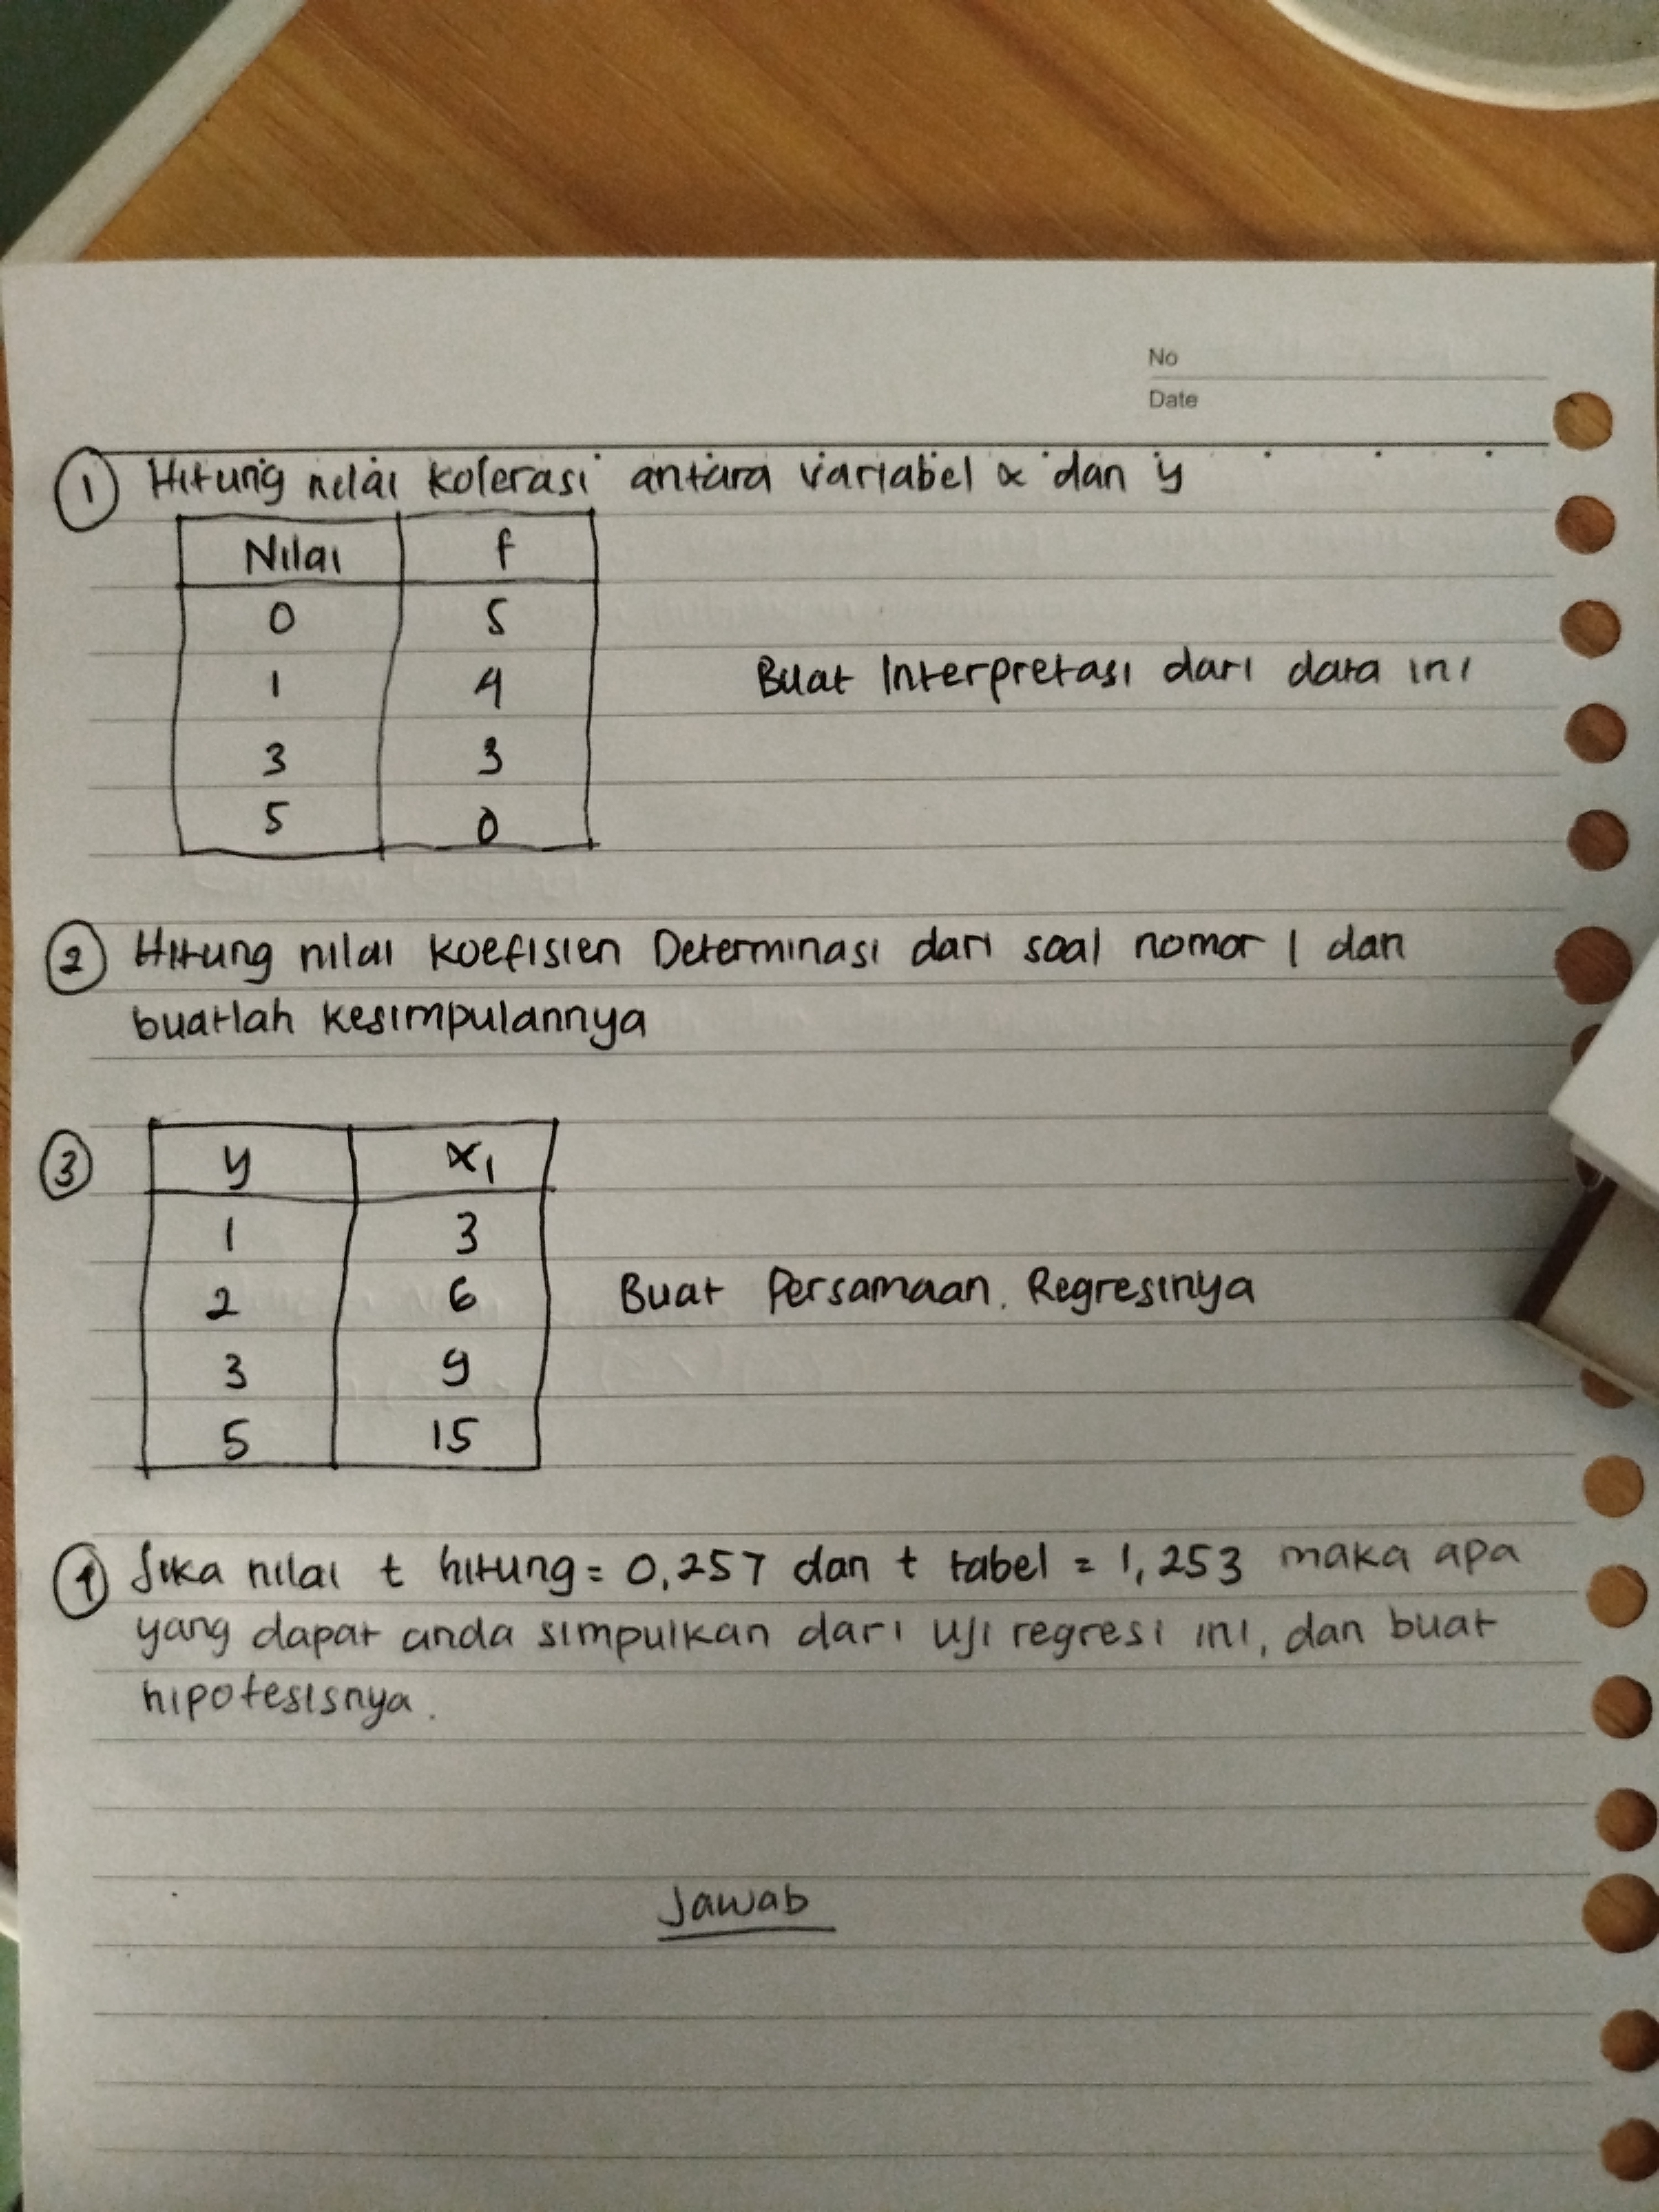 No
Date
① Hitung nilai kolerasi antara variabel x dan y
Nilai f
0 5
1 4
3 3
5 0
Buat Interpretasi dari data ini
② Hitung nilai koefisien Determinasi dari soal nomor 1 dan
buatlah kesimpulannya
③ y x₁
1 3
2 6
3 9
5 15
Buat Persamaan. Regresinya
④ Jika nilai t hitung = 0,257 dan t tabel = 1,253 maka apa
yang dapat anda simpulkan dari uji regresi ini, dan buat
hipotesisnya.
Jawab